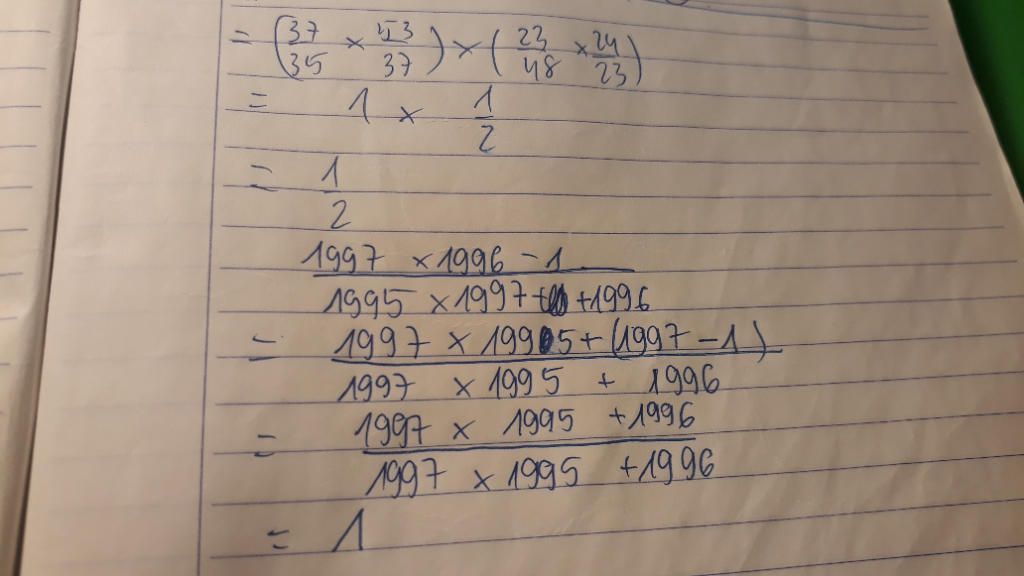 = (37/35 × 53/37) × (23/48 × 24/23)
= 1 × 1/2
= 1/2
1997 × 1996 - 1
1995 × 1997 + 1996
= 1997 × 1995 + (1997 - 1)
1997 × 1995 + 1996
= 1997 × 1995 + 1996
1997 × 1995 + 1996
= 1